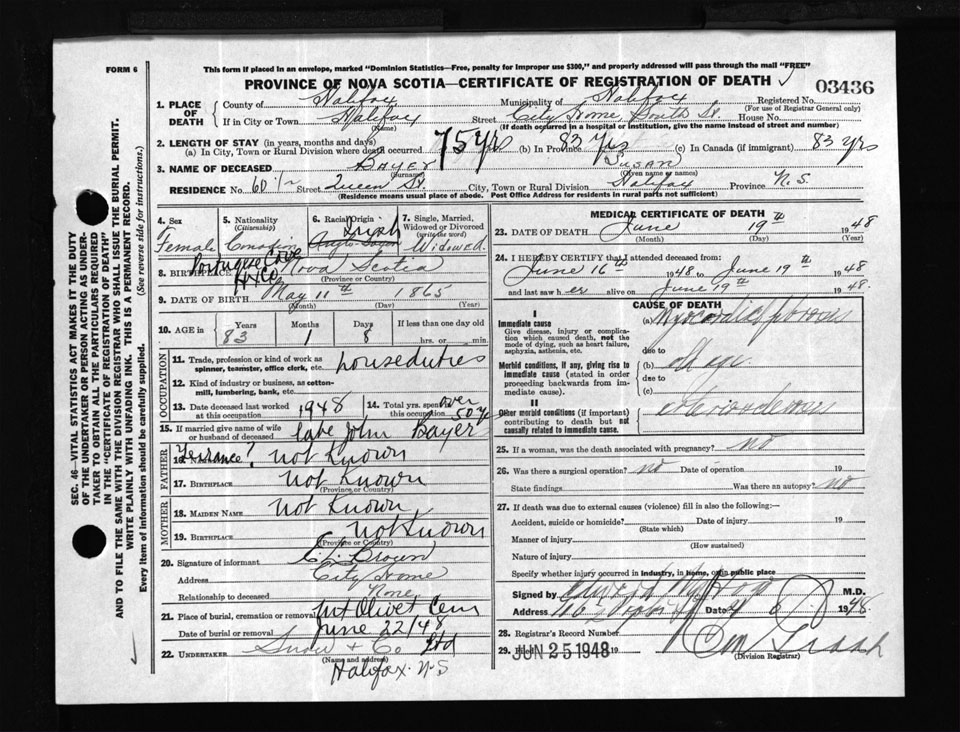 FORM 6
This form if placed in an envelope, marked "Dominion Statistics—Free, penalty for improper use $300," and properly addressed will pass through the mail "FREE"
PROVINCE OF NOVA SCOTIA—CERTIFICATE OF REGISTRATION OF DEATH
03436
1. PLACE OF DEATH
County of Halifax
Municipality of Halifax
Registered No.
(For use of Registrar General only)
If in City or Town Halifax
(Name)
Street City Home South St. House No.
(If death occurred in a hospital or institution, give the name instead of street and number)
2. LENGTH OF STAY (in years, months and days)
(a) In City, Town or Rural Division where death occurred 75 yrs (b) In Province 83 yrs (c) In Canada (if immigrant) 83 yrs
3. NAME OF DECEASED BAYER SUSAN
(Surname) (Given name or names)
RESIDENCE No. 60 1/2 Street Queen St City, Town or Rural Division Halifax Province N.S.
(Residence means usual place of abode. Post Office Address for residents in rural parts not sufficient)
SEC. 46—VITAL STATISTICS ACT MAKES IT THE DUTY
OF THE UNDERTAKER OR PERSON ACTING AS UNDER-
TAKER TO OBTAIN ALL THE PARTICULARS REQUIRED
IN THE "CERTIFICATE OF REGISTRATION OF DEATH"
AND TO FILE THE SAME WITH THE DIVISION REGISTRAR WHO SHALL ISSUE THE BURIAL PERMIT.
WRITE PLAINLY WITH UNFADING INK. THIS IS A PERMANENT RECORD.
Every item of information should be carefully supplied. (See reverse side for instructions.)
4. Sex
Female
5. Nationality
(Citizenship)
Canadian
6. Racial Origin
Irish
Anglo-Saxon
7. Single, Married, Widowed or Divorced
(write the word)
Widowed.
Portuguese Cove
Hx Co.
8. BIRTHPLACE Nova Scotia
(Province or Country)
9. DATE OF BIRTH May 11th 1865
(Month) (Day) (Year)
10. AGE in
Years Months Days If less than one day old
83 1 8 hrs. or min.
OCCUPATION
11. Trade, profession or kind of work as spinner, teamster, office clerk, etc. houseduties
12. Kind of industry or business, as cotton-mill, lumbering, bank, etc.
13. Date deceased last worked at this occupation 1948
14. Total yrs. spent over 50 y
15. If married give name of wife or husband of deceased late John Bayer
FATHER
Terrance?
16. NAME not known
17. BIRTHPLACE not known
(Province or Country)
MOTHER
18. MAIDEN NAME not known
19. BIRTHPLACE not known
(Province or Country)
20. Signature of informant Brown
Address City Home
Relationship to deceased None
21. Place of burial, cremation or removal Mt Olivet Cem
Date of burial or removal June 22/48
22. UNDERTAKER Snow & Co Ltd
(Name and address)
Halifax. N-S
MEDICAL CERTIFICATE OF DEATH
23. DATE OF DEATH June 19th 1948
(Month) (Day) (Year)
24. I HEREBY CERTIFY that I attended deceased from:
June 16th 1948 to June 19th 1948
and last saw her alive on June 19th 1948.
CAUSE OF DEATH
I
Immediate cause
Give disease, injury or complication which caused death, not the mode of dying, such as heart failure, asphyxia, asthenia, etc.
(a) Myocardial fibrosis
due to
Morbid conditions, if any, giving rise to immediate cause (stated in order proceeding backwards from immediate cause).
(b) old age
due to
(c)
II
Other morbid conditions (if important) contributing to death but not causally related to immediate cause.
25. If a woman, was the death associated with pregnancy? no
26. Was there a surgical operation? no Date of operation 19
State findings Was there an autopsy? no
27. If death was due to external causes (violence) fill in also the following:—
Accident, suicide or homicide? Date of injury 19
(State which)
Manner of injury
(How sustained)
Nature of injury
Specify whether injury occurred in industry, in home, or in public place
Signed by M.D.
Address Date 1948.
28. Registrar's Record Number
29. Filed JUN 25 1948 19
(Division Registrar)